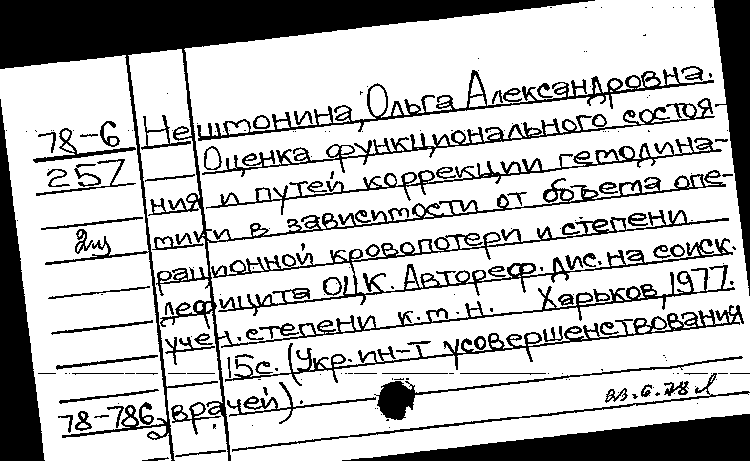 78-6 Нештонина, Ольга Александровна.
257 Оценка функционального состоя-
ния и путей коррекции гемодина-
2щ мики в зависимости от объема опе-
рационной кровопотери и степени
дефицита ОЦК. Автореф. дис. на соиск.
учен. степени к.м.н. Харьков, 1977.
15с. (Укр. ин-т усовершенствования
78-786 врачей).